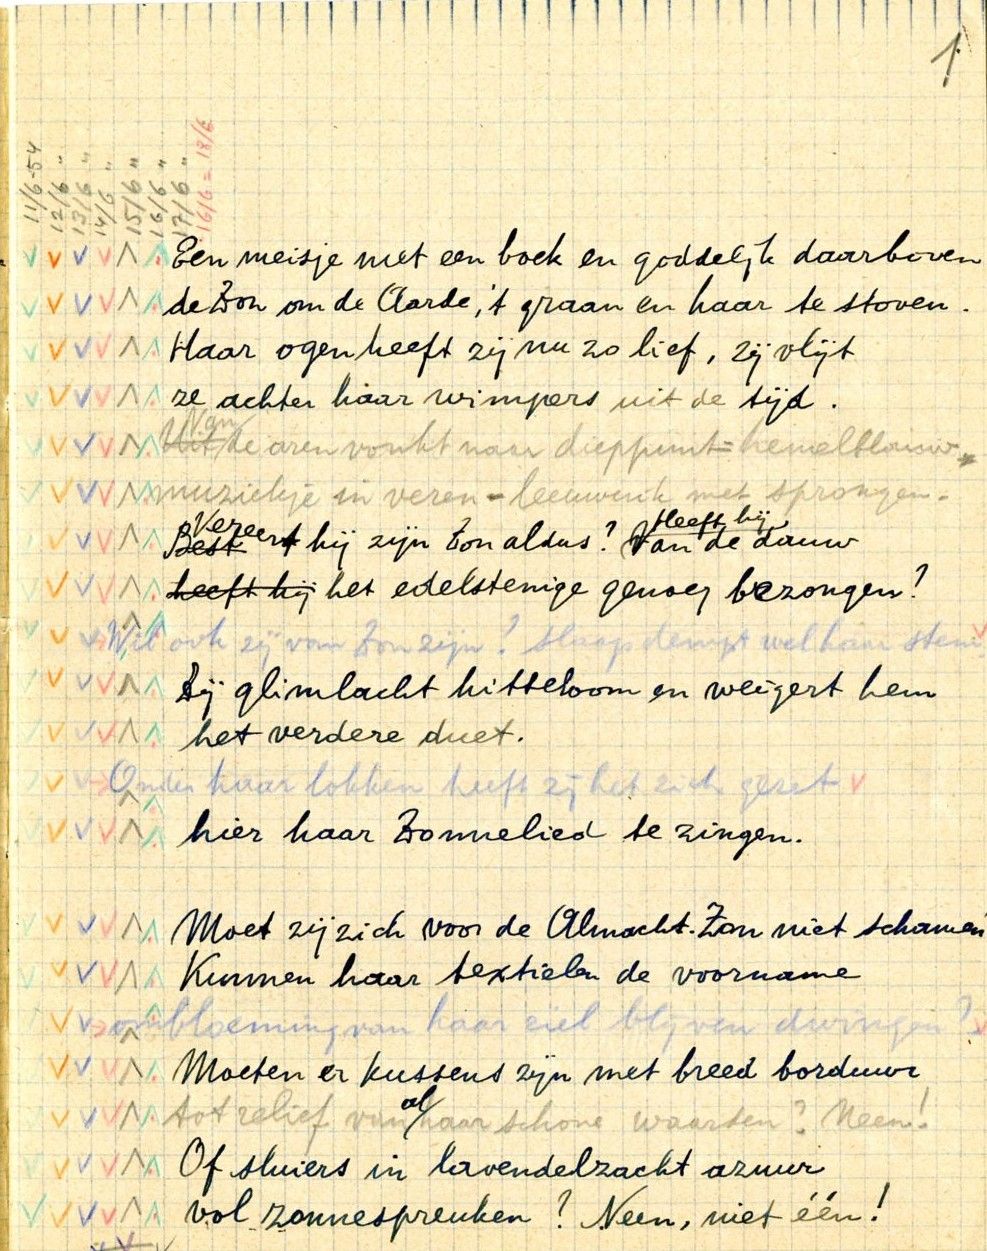 1
11/6-54
12/6 "
13/6 "
14/6 "
15/6 "
16/6 "
17/6 "
16/6 = 18/6
Een meisje met een boek en goddelijk daarboven
de Zon om de Aarde, 't graan en haar te stoven.
Haar ogen heeft zij nu zo lief, zij vlijt
ze achter haar wimpers uit de tijd.
Van
Uit de aren vonkt naar dieppunt-hemelblauw
muziekje in veren-leeuwerik met sprongen.
Vereert Heeft hij
Best hij zijn Zon aldus? Van de dauw
heeft hij het edelstenige genoeg bezongen?
Wil ook zij van Zon zijn? Slaap dempt wel haar stem
Zij glimlacht hitteloom en weigert hem
het verdere duet.
Onder haar lokken heeft zij het zich gezet
hier haar Zonnelied te zingen.
Moet zij zich voor de Almacht-Zon niet schamen
Kunnen haar textielen de voorname
ombloeming van haar ziel blijven dwingen?
Moeten er kussens zijn met breed borduur
al
tot relief van haar schone waarden? Neen!
Of sluiers in lavendelzacht azuur
vol zonnespreuken? Neen, niet één!